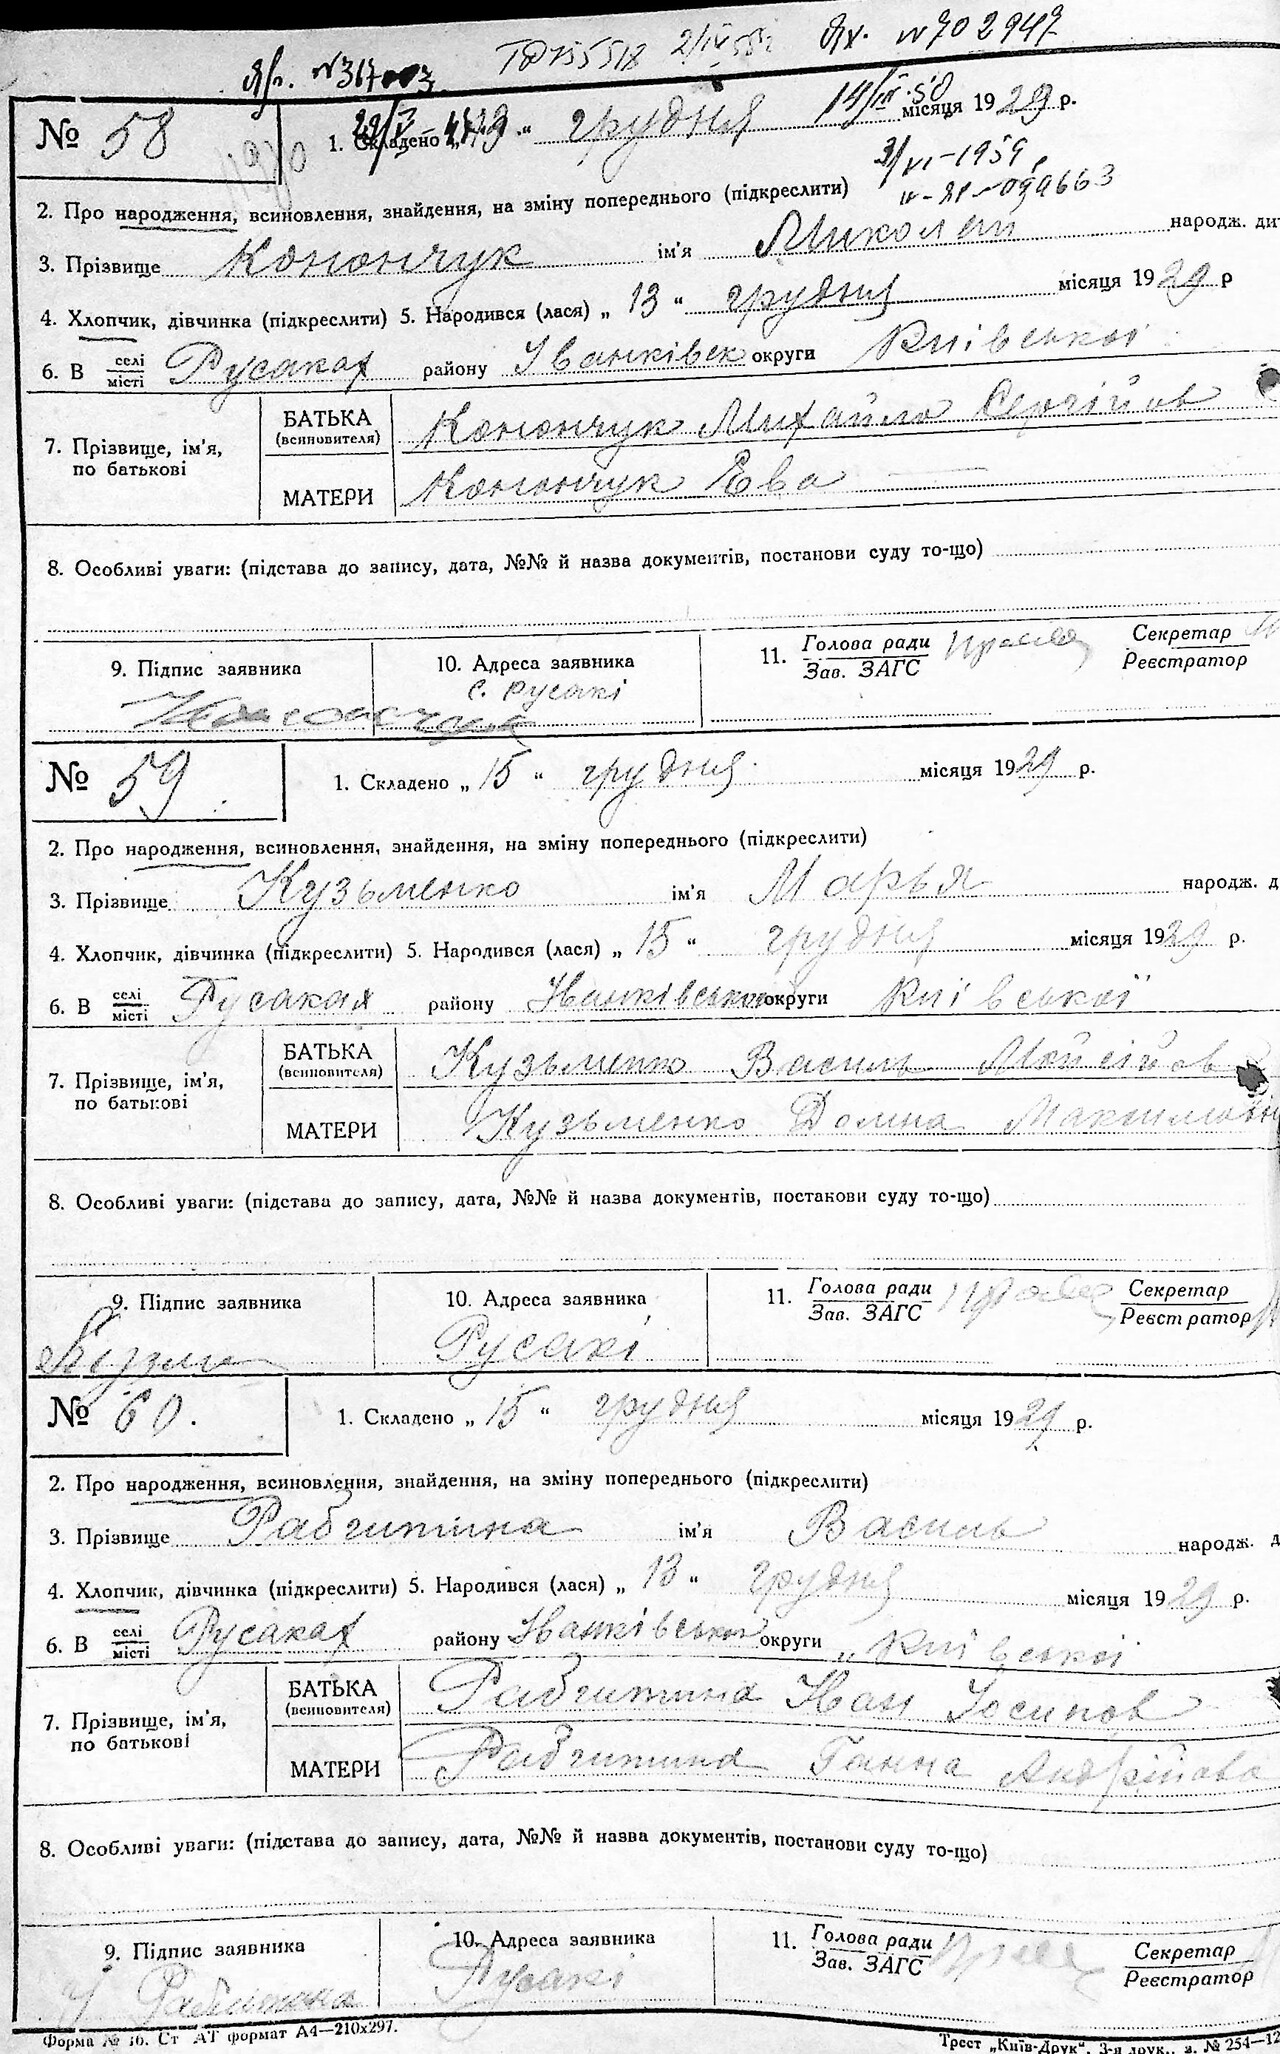 Яр. №367003 ТФ 155518 2/IV 58г Ях. №702947
29/V-49 14/III-50
№ 58
1. Складено „ “ грудня місяця 1929 р.
3/VI-1959 р
IV-ЯР-039663
2. Про народження, всиновлення, знайдення, на зміну попереднього (підкреслити)
3. Прізвище Конончук ім'я Миколай народж. ди
4. Хлопчик, дівчинка (підкреслити) 5. Народився (лася) „ 13 “ грудня місяця 1929 р
6. В селі/місті Русаках району Іванківськ округи Київської
7. Прізвище, ім'я, по батькові
БАТЬКА (всиновителя) Конончук Михайло Сергійов
МАТЕРИ Конончук Ева
8. Особливі уваги: (підстава до запису, дата, №№ й назва документів, постанови суду то-що)
9. Підпис заявника
10. Адреса заявника
с. Русакі
11. Голова ради / Зав. ЗАГС
Секретар / Реєстратор
№ 59
1. Складено „ 15 “ грудня місяця 1929 р.
2. Про народження, всиновлення, знайдення, на зміну попереднього (підкреслити)
3. Прізвище Кузьменко ім'я Марья народж. д
4. Хлопчик, дівчинка (підкреслити) 5. Народився (лася) „ 15 “ грудня місяця 1929 р.
6. В селі/місті Русаках району Іванківської округи Київської
7. Прізвище, ім'я, по батькові
БАТЬКА (всиновителя) Кузьменко Василь Мойсійов
МАТЕРИ Кузьменко Домна Максимовн
8. Особливі уваги: (підстава до запису, дата, №№ й назва документів, постанови суду то-що)
9. Підпис заявника
10. Адреса заявника
Русакі
11. Голова ради / Зав. ЗАГС
Секретар / Реєстратор
№ 60.
1. Складено „ 15 “ грудня місяця 1929 р.
2. Про народження, всиновлення, знайдення, на зміну попереднього (підкреслити)
3. Прізвище Рабчитина ім'я Василь народж. д
4. Хлопчик, дівчинка (підкреслити) 5. Народився (лася) „ 13 “ грудня місяця 1929 р.
6. В селі/місті Русаках району Іванківської округи Київської
7. Прізвище, ім'я, по батькові
БАТЬКА (всиновителя) Рабчитина Іван Йосипов
МАТЕРИ Рабчитина Ганна Андрійова
8. Особливі уваги: (підстава до запису, дата, №№ й назва документів, постанови суду то-що)
9. Підпис заявника
10. Адреса заявника
Русакі
11. Голова ради / Зав. ЗАГС
Секретар / Реєстратор
Форма № 16. Ст АТ формат А4—210х297.
Трест „Київ-Друк“, 3-я друк., з. № 254—12